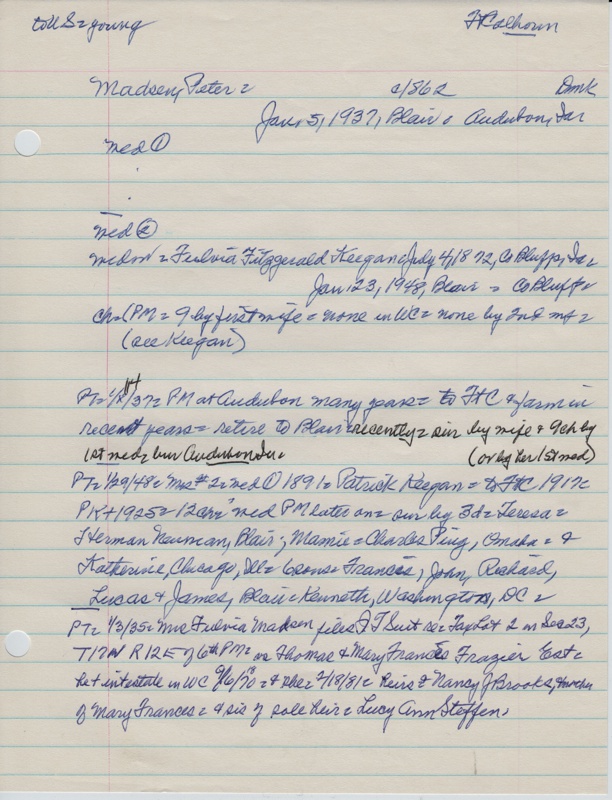 to US = young Ft Calhoun
Madsen, Peter = c/1862 Dmk
Jan. 5, 1937, Blair = Audubon, Ia
med ①
med ②
Fulvia Fitzgerald Keegan, July 4, 1872, Co Bluffs, Ia =
Jan. 23, 1948, Blair = Co Bluffs =
ch = (PM = 9 by first wife = none in WC = none by 2nd m =
(see Keegan)
PT = 1/14/37 = PM at Audubon many years = to Ft C & farm in
recent years = retire to Blair recently = sur by wife & 9 ch by
1st med = bur Audubon Ia = (or by her 1st med)
PT = 1/29/48 = Mrs # 2 = med ① 1891 = Patrick Keegan = to Ft C 1917 =
PK + 1925 = 12 chr = med PM later on = sur by 3 d = Teresa =
Herman Neuman, Blair; Mamie = Charles Ping, Omaha = &
Katherine, Chicago, Ill = 6 sons = Francis, John, Richard,
Lucas & James, Blair = Kenneth, Washington, DC =
PT = 1/3/35 = Mrs Fulvia Madsen files QT Suit re = Tax Lot 2 in Sec 23,
T17N R12E of 6th PM = vs Thomas & Mary Frances Frazier Est =
he + intestate in WC 9/6/70 = & she = 2/18/81 = heirs = Nancy J Brooks,
of Mary Frances = & sis of sole heir = Lucy Ann Steffen.